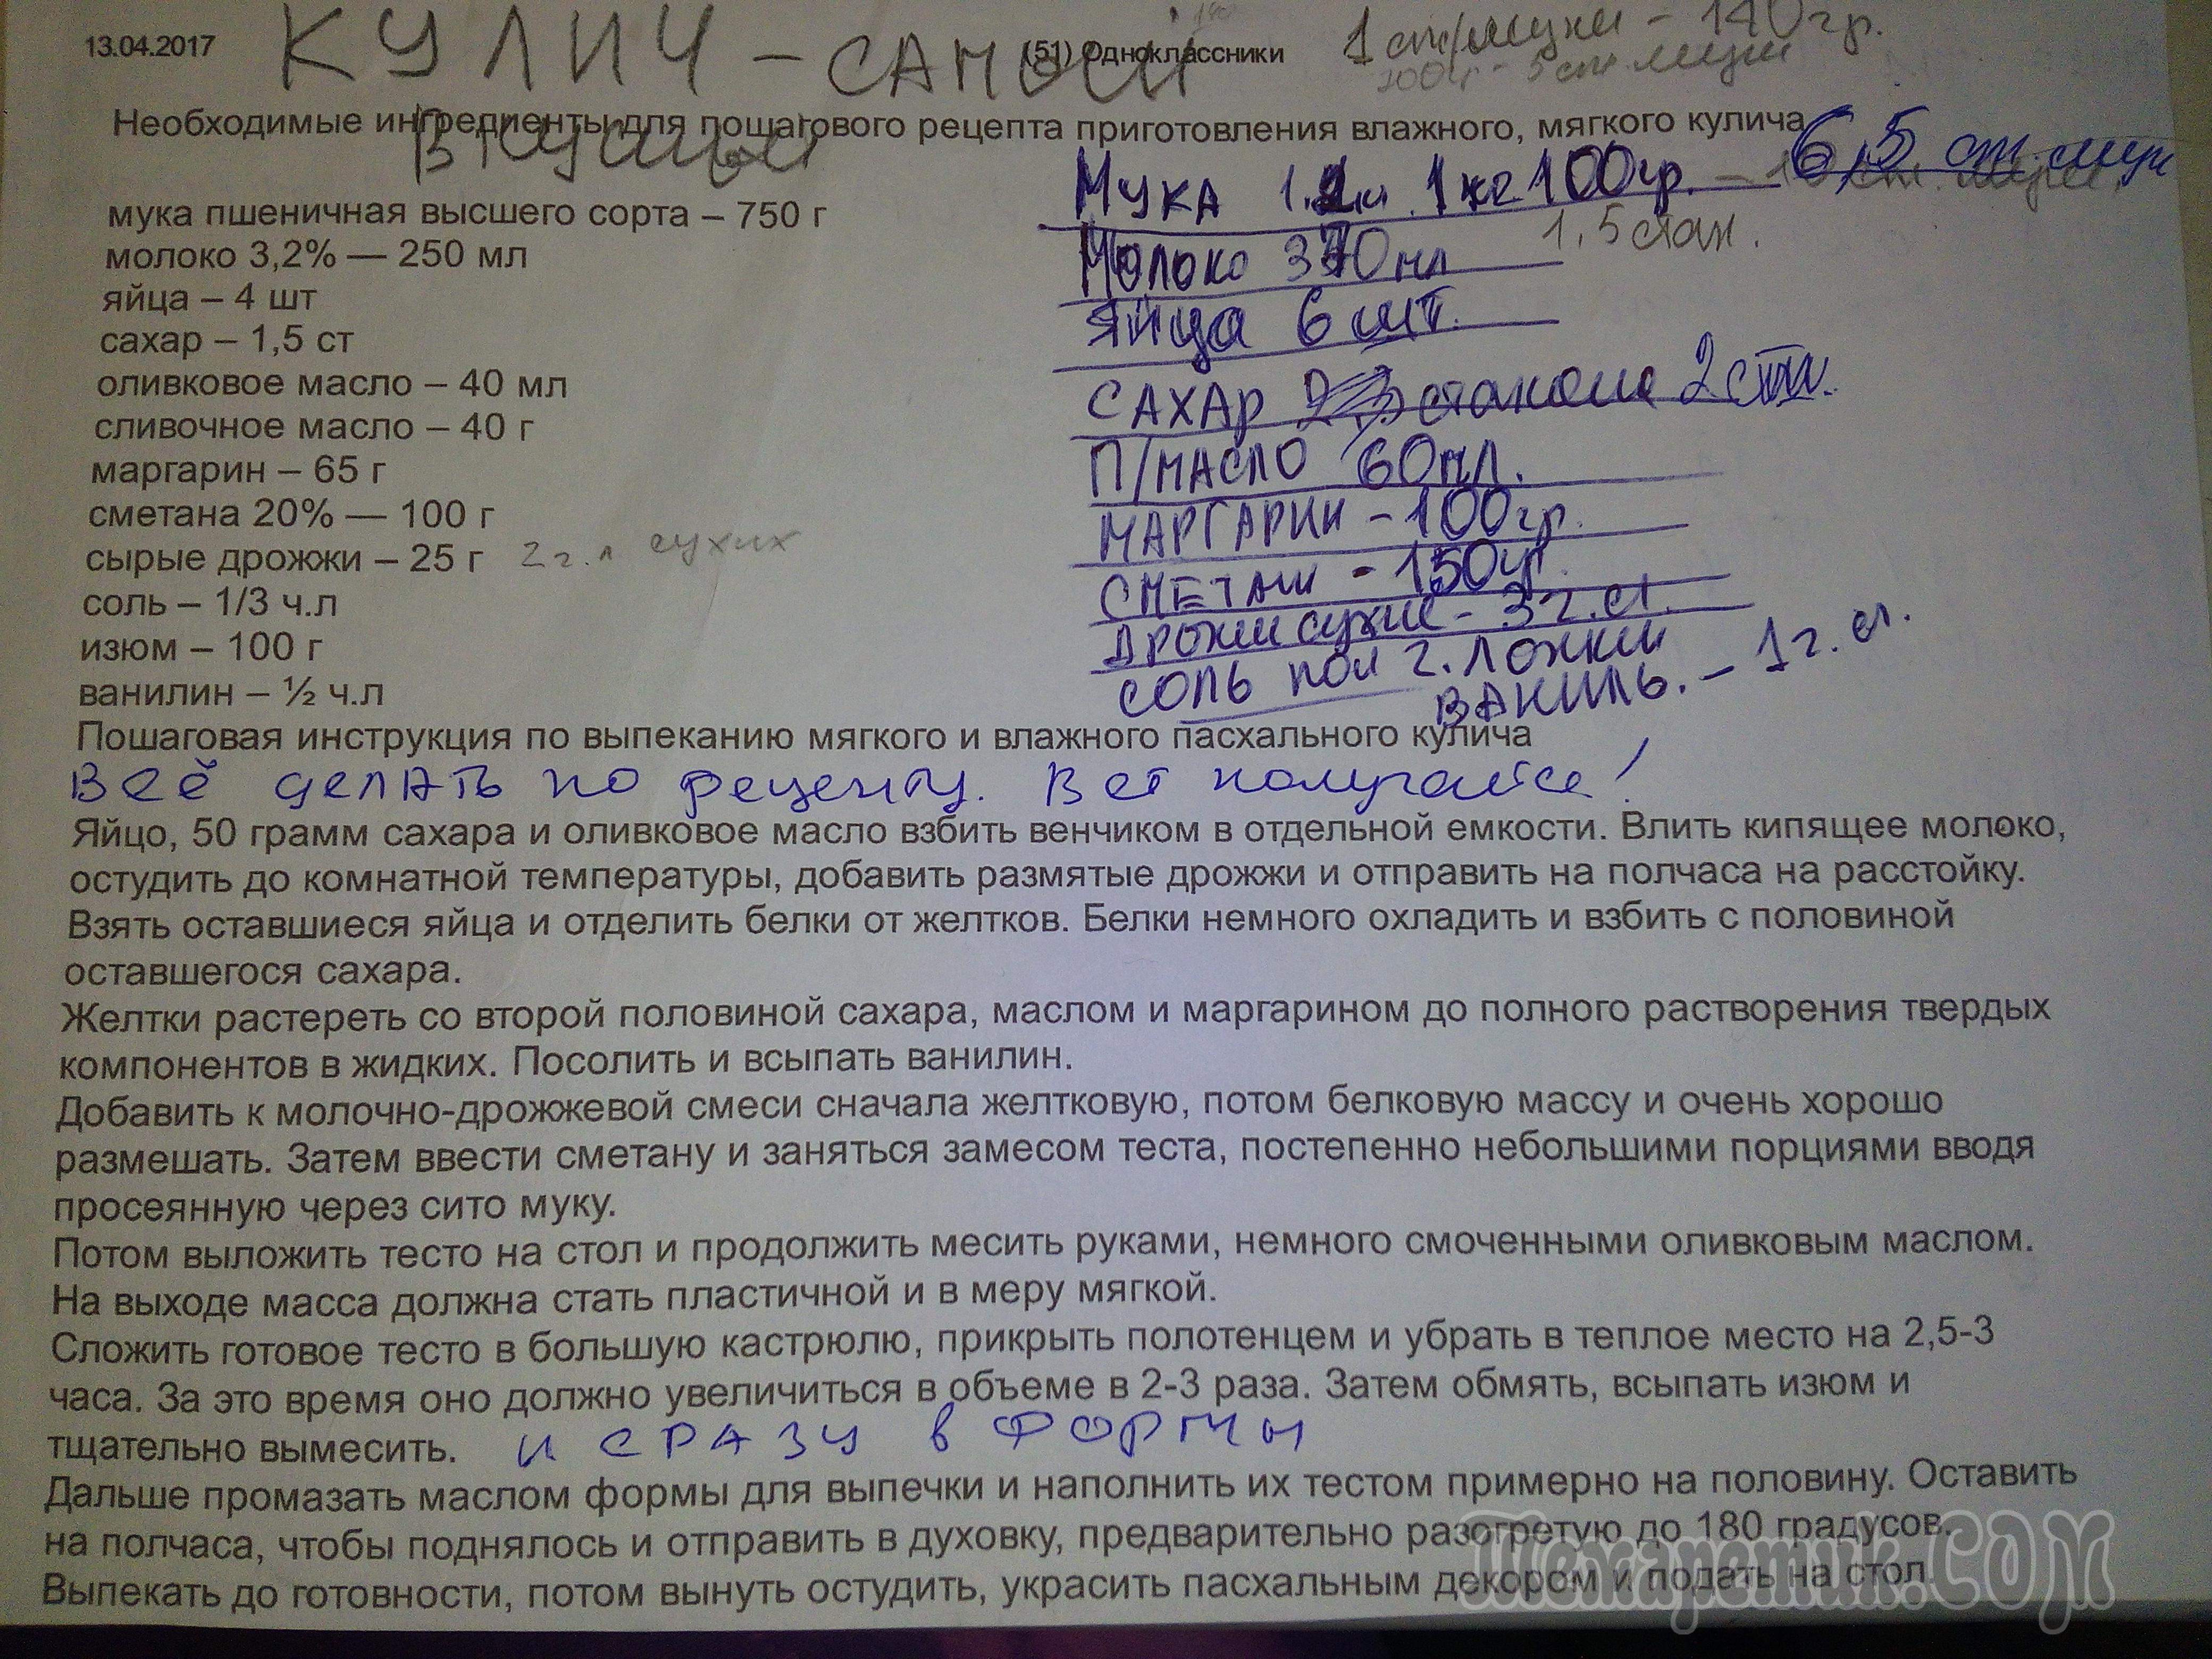 13.04.2017
(51) Одноклассники
КУЛИЧ - САМЫЙ
1 ст/муки - 140гр.
5 ст. муки
Необходимые ингредиенты для пошагового рецепта приготовления влажного, мягкого кулича
Вкусный
мука пшеничная высшего сорта – 750 г
МУКА 1кг 100гр. - 6,5 ст. мук
молоко 3,2% — 250 мл
МОЛОКО 370мл 1,5 стак.
яйца – 4 шт
ЯЙЦА 6 шт.
сахар – 1,5 ст
САХАР стакана 2 ст.
оливковое масло – 40 мл
П/МАСЛО 60мл.
сливочное масло – 40 г
маргарин – 65 г
МАРГАРИН - 100гр.
сметана 20% — 100 г
СМЕТАНЫ - 150гр.
сырые дрожжи – 25 г 2 ч. л сухих
ДРОЖЖИ сухие - 3 ч. л.
соль – 1/3 ч.л
СОЛЬ пол ч. ЛОЖКИ
изюм – 100 г
ВАНИЛЬ. - 1 ч. л.
ванилин – ½ ч.л
Пошаговая инструкция по выпеканию мягкого и влажного пасхального кулича
Всё делать по рецепту. Всё получается!
Яйцо, 50 грамм сахара и оливковое масло взбить венчиком в отдельной емкости. Влить кипящее молоко,
остудить до комнатной температуры, добавить размятые дрожжи и отправить на полчаса на расстойку.
Взять оставшиеся яйца и отделить белки от желтков. Белки немного охладить и взбить с половиной
оставшегося сахара.
Желтки растереть со второй половиной сахара, маслом и маргарином до полного растворения твердых
компонентов в жидких. Посолить и всыпать ванилин.
Добавить к молочно-дрожжевой смеси сначала желтковую, потом белковую массу и очень хорошо
размешать. Затем ввести сметану и заняться замесом теста, постепенно небольшими порциями вводя
просеянную через сито муку.
Потом выложить тесто на стол и продолжить месить руками, немного смоченными оливковым маслом.
На выходе масса должна стать пластичной и в меру мягкой.
Сложить готовое тесто в большую кастрюлю, прикрыть полотенцем и убрать в теплое место на 2,5-3
часа. За это время оно должно увеличиться в объеме в 2-3 раза. Затем обмять, всыпать изюм и
тщательно вымесить. И СРАЗУ в ФОРМЫ
Дальше промазать маслом формы для выпечки и наполнить их тестом примерно на половину. Оставить
на полчаса, чтобы поднялось и отправить в духовку, предварительно разогретую до 180 градусов.
Выпекать до готовности, потом вынуть остудить, украсить пасхальным декором и подать на стол.
Темаретик.COM